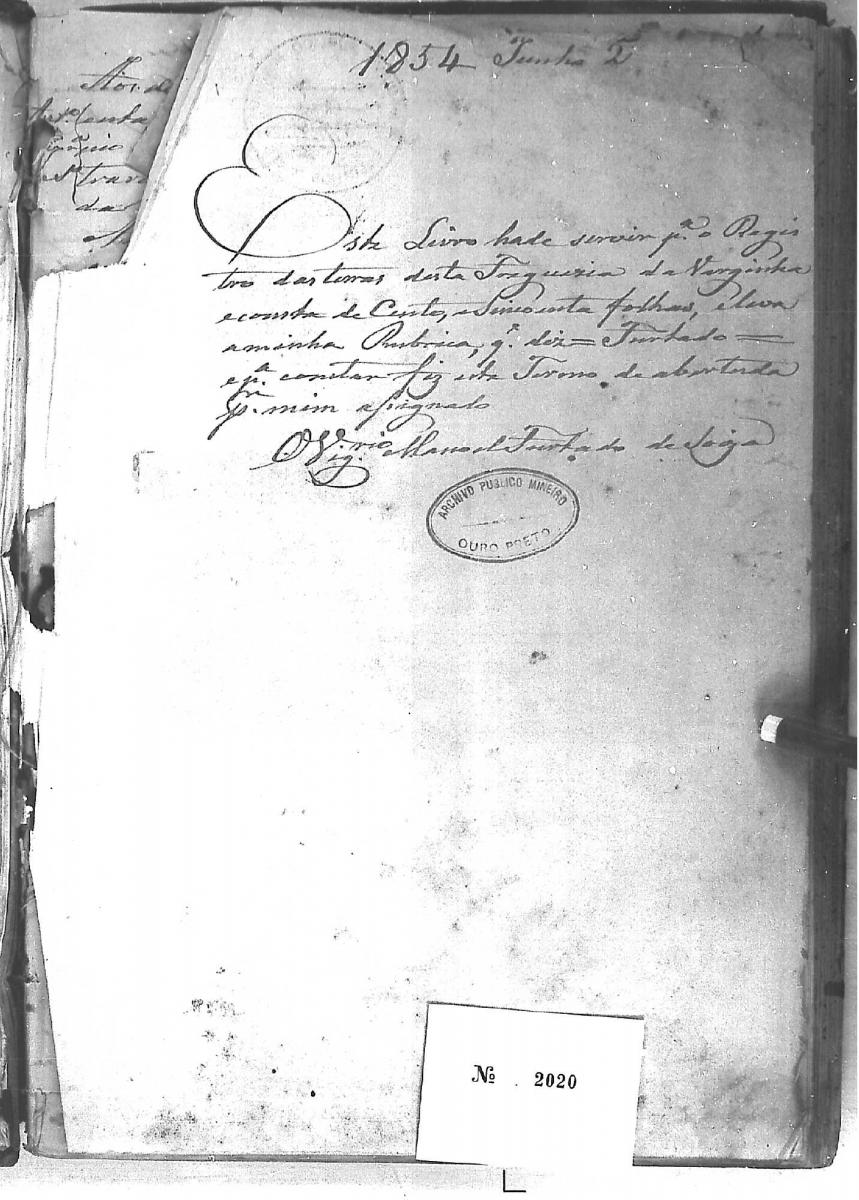 1854 Junho 2
Este Livro hade servir p.ª o Regis
tro das terras desta Freguezia da Verginha
e consta de Cento, e Sincoenta folhas, e leva
a minha Rubrica, q.' diz = Furtado =
e p.ª constar fiz este Termo de abertura
p.r mim assignado
O Vig.rio Manoel Furtado de
ARCHIVO PUBLICO MINEIRO
OURO PRETO
Nº 2020